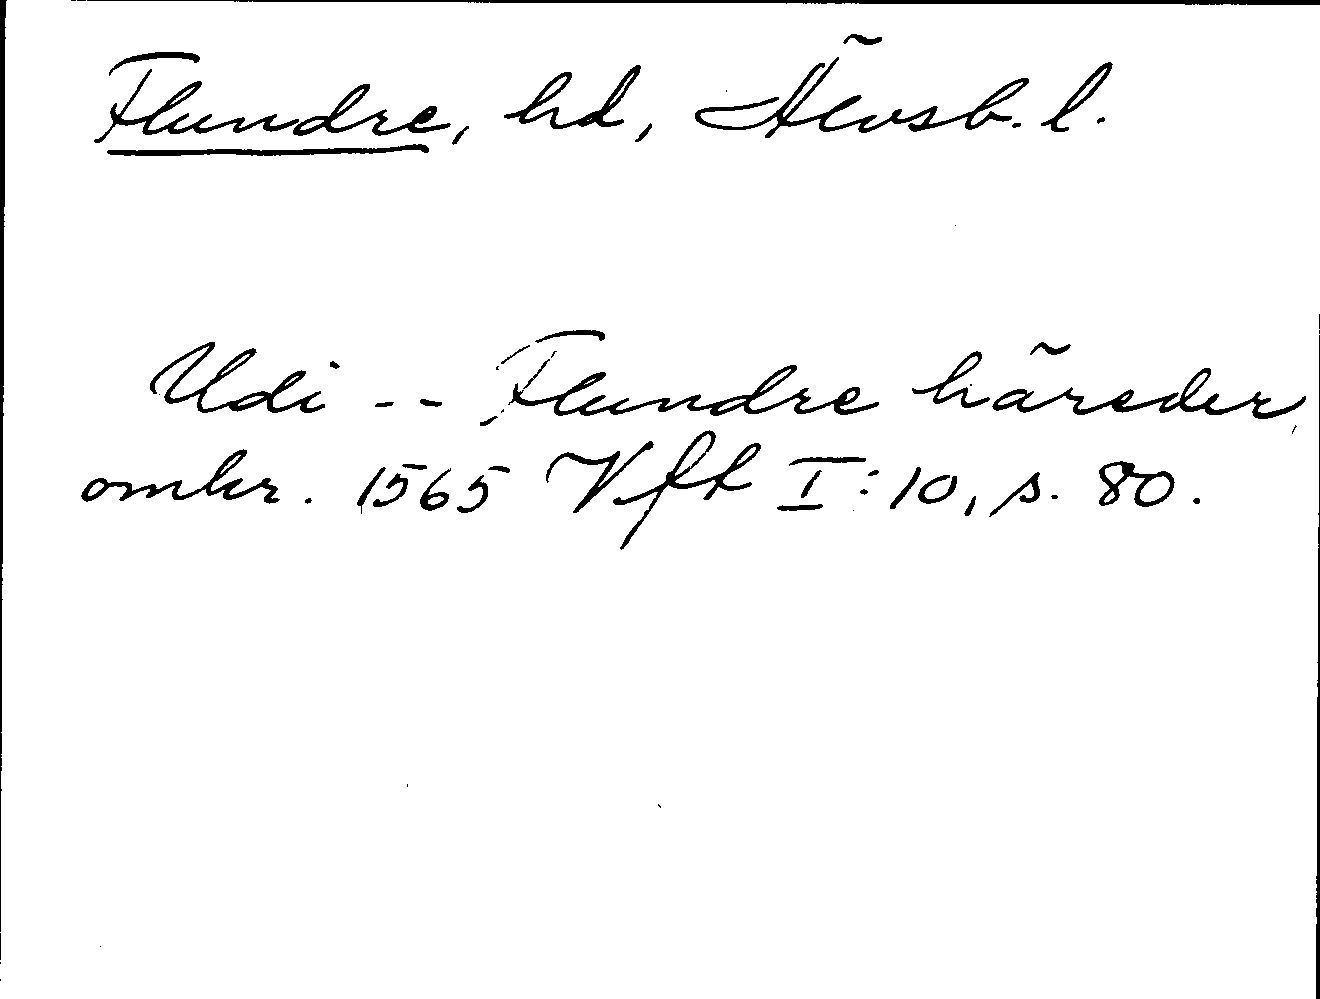 Flundre, hd, Älvsb. l.
Udi -- Flundre häreder,
omkr. 1565 Vft I:10, s. 80.